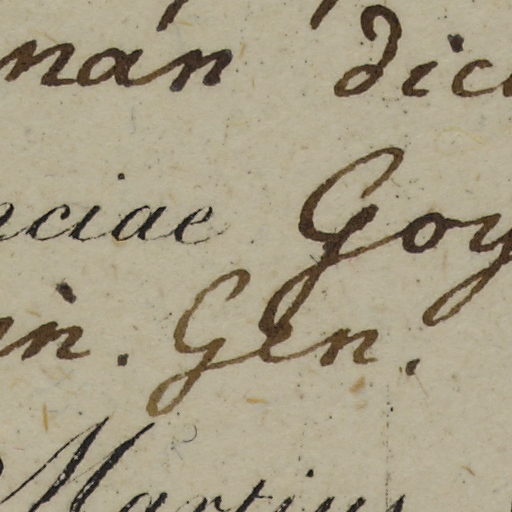 nan dic
nciae Goy
in. Gen.
Martius